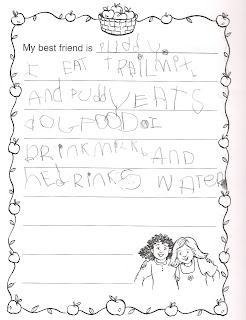 My best friend is PUDDY.
I EAT TRAILMIX
AND PUDDY EATS
dOGFOOD. I
DRINKMILK AND
HEDRINKS WATER